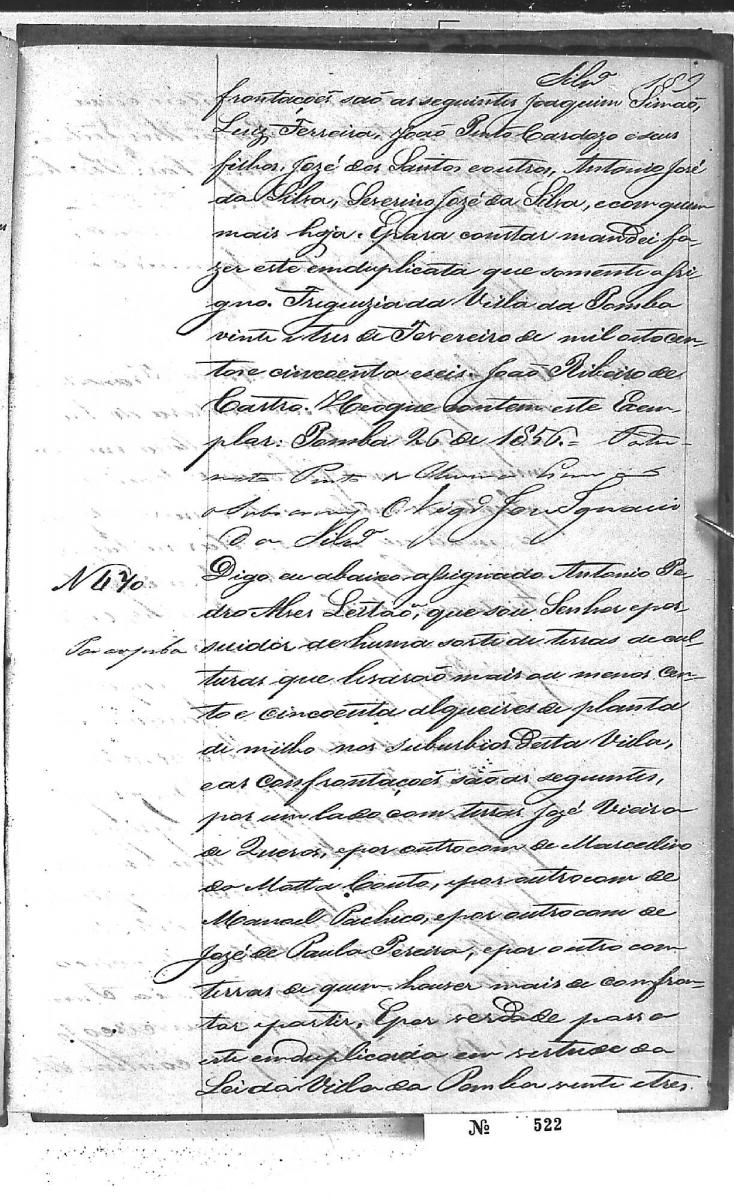 Silvª 182
frontacoẽs saõ as seguintes Joaquim Simaõ,
Luiz Ferreira, Joaõ Pinto Cardozo e seus
filhos, Jozé dos Santos e outros, Antonio José
da Silva, Severino Jozé da Silva, e com quem
mais haja. E para constar mandei fa-
zer este em duplicata que somente assi-
gno. Freguezia da Villa da Pomba
vinte e tres de Fevereiro de mil oitocen-
tos e cincoenta e seis. Joaõ Ribeiro de
Castro. He o que contem este Exem-
plar: Pomba 26 de 1856. =
Pinto de Oliveira
O Vigrº José Ignacio
da Silvª
N 470
Digo eu abaixo assignado Antonio Pe-
dro Alves Leitaõ, que sou Senhor e pos-
suidor de huma sorte de terras de cul-
turas que levaraõ mais ou menos cen-
to e cincoenta alqueires de planta
de milho nos suburbios desta Villa,
e as confrontacoẽs saõ as seguintes,
por um lado com terras Jozé Vieira
de Queros, e por outro com de Marcelino
da Motta Couto, e por outro com de
Manoel Pacheco, e por outro com de
Jozé de Paula Pereira, e por outro com
terras de quem houver mais de confron-
tar e partir. E por verdade passo
este em duplicada em vertude da
Lei da Villa da Pomba vinte e tres
Nº 522